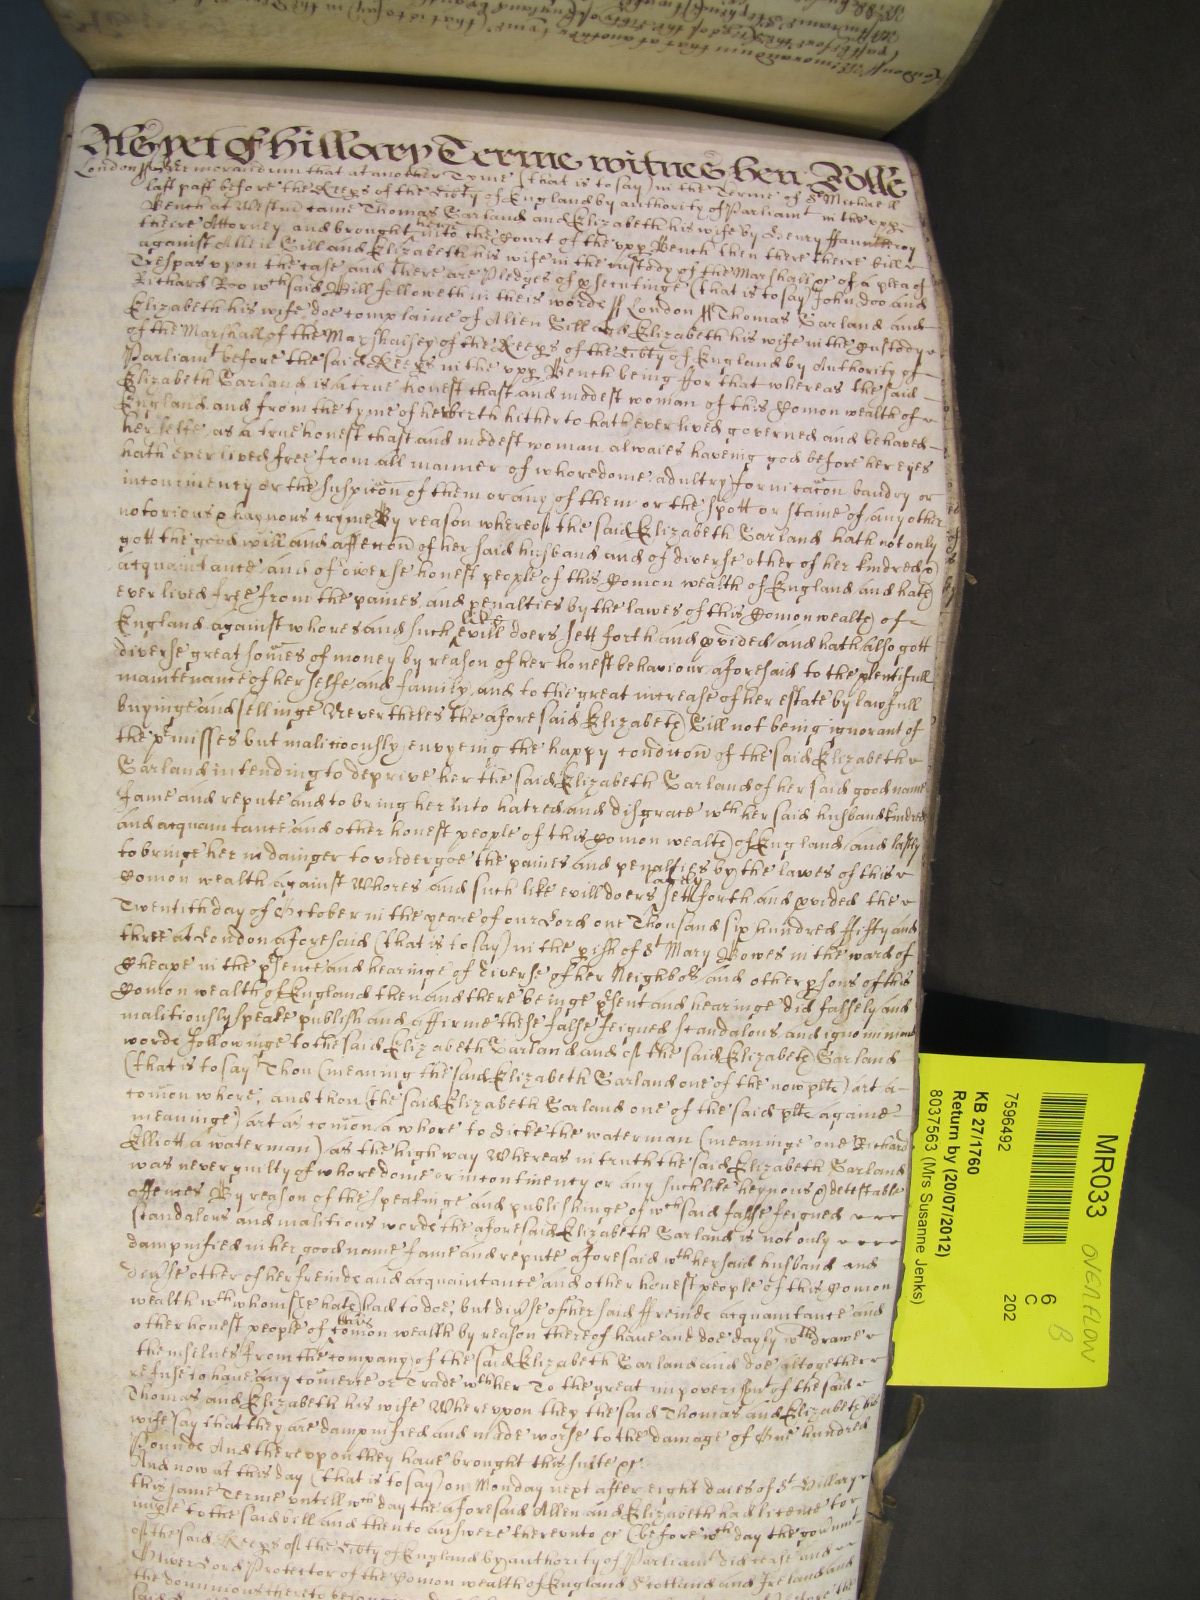 As yet of Hillary Terme witnes hen Rolle
London ss Memorandum that at another Tyme (that is to say) in the Terme of St Michaell
last past before the Keeps of the Liberty of England by authority of Parliamt in the upp
Bench at Westm came Thomas Garland and Elizabeth his wife by Henry
theire Attorney and brought into the Court of the upp Bench then there theire bill
against Allen Gill and Elizabeth his wife in the custody of the Marshall &c of a plea of
Trespas upon the case and there are Pledges of psecutinge (that is to say) John Doo and
Richard Roo wch said Bill followeth in theis words ss London ss Thomas Garland and
Elizabeth his wife doe complaine of Allen Gill and Elizabeth his wife in the Custody
of the Marshall of the Marshalsey of the Keeps of the Libty of England by Authority of
Parliamt before the said Keeps in the upp Bench being ffor that whereas the said
Elizabeth Garland is a true honest chast and modest woman of this Comon wealth of
England and from the tyme of her birth hitherto hath ever lived governed and behaved
her selfe as a true honest chast and modest woman alwaies haveing god before her eyes
hath ever lived free from all manner of whoredome adultry fornicacon baudry or
incontinency or the suspicon of them or any of them or the spott or staine of any other
notorious & haynous cryme By reason whereof the said Elizabeth Garland hath not only
gott the good will and affeccon of her said husband and of diverse other of her kindred &
acquaintance and of diverse honest people of this Comon wealth of England and hath
ever lived free from the paines and penalties by the lawes of this Comon wealth of
England against whores and such like evill doers sett forth and pvided and hath also gott
diverse great somes of money by reason of her honest behaviour aforesaid to the plentifull
maintenance of her selfe and family and to the great increase of her estate by lawfull
buyinge and sellinge Nevertheles the aforesaid Elizabeth Gill not being ignorant of
the pmisses but maliciously envyeing the happy condicon of the said Elizabeth
Garland intending to deprive her the said Elizabeth Garland of her said good name
fame and repute and to bring her into hatred and disgrace wth her said husband kindred
and acquaintance and other honest people of this Comon wealth of England and lastly
to bringe her in dainger to undergoe the paines and penalties by the lawes of this
Comon wealth against whores and such like evill doers lately sett forth and pvided the
Twentith day of October in the yeare of our Lord one Thousand six hundred ffifty and
three at London aforesaid (that is to say) in the pish of St Mary Bowes in the ward of
Cheape in the psence and hearinge of diverse of her Neighbors and other psons of this
Comon wealth of England then and there beinge psent and hearinge did falsely and
malitiously speake publish and affirme these false feigned scandalous and ignominious
words followinge to the said Elizabeth Garland and of the said Elizabeth Garland
(that is to say) Thou (meaning the said Elizabeth Garland one of the now plts) art a
comon whore, and thou (the said Elizabeth Garland one of the said plts againe
meaninge) art as comon a whore to Dicke the waterman (meaninge one Richard
Elliott a waterman) as the high way Whereas in truth the said Elizabeth Garland
was never guilty of whoredome or incontinency or any such like heynous & detestable
offences By reason of the speakinge and publishinge of wch said false feigned
scandalous and malitious words the aforesaid Elizabeth Garland is not only
dampnified in her good name fame and repute aforesaid wth her said husband and
divse other of her freinds and acquaintance and other honest people of this Comon
wealth wth whom she hath had to doe, but divse of her said ffreinds acquaintance and
other honest people of this comon wealth by reason thereof have and doe dayly wthdrawe
themselves from the company of the said Elizabeth Garland and doe altogether
refuse to have any comerce or Trade wth her To the great impoverishmt of the said
Thomas and Elizabeth his wife Whereupon they the said Thomas and Elizabeth his
wife say that they are dampnified and made worse to the damage of One hundred
Pounds And thereupon they have brought this suite &c
And now at this day (that is to say) on Monday next after eight daies of St Hillary
this same Terme untill wch day the aforesaid Allen and Elizabeth had licence to
imple to the said bill and then to answere thereunto &c (before wch day the govnmt
of the said Keeps of the Libty of England by authority of Parliamt did cease and
Oliver Lord Protector of the Comon wealth of England Scotland and Ireland and
the dominions thereto
MR033
OVERFLOW
B
7596492
KB 27/1760
Return by (20/07/2012)
8037563 (Mrs Susanne Jenks)
6
C
202